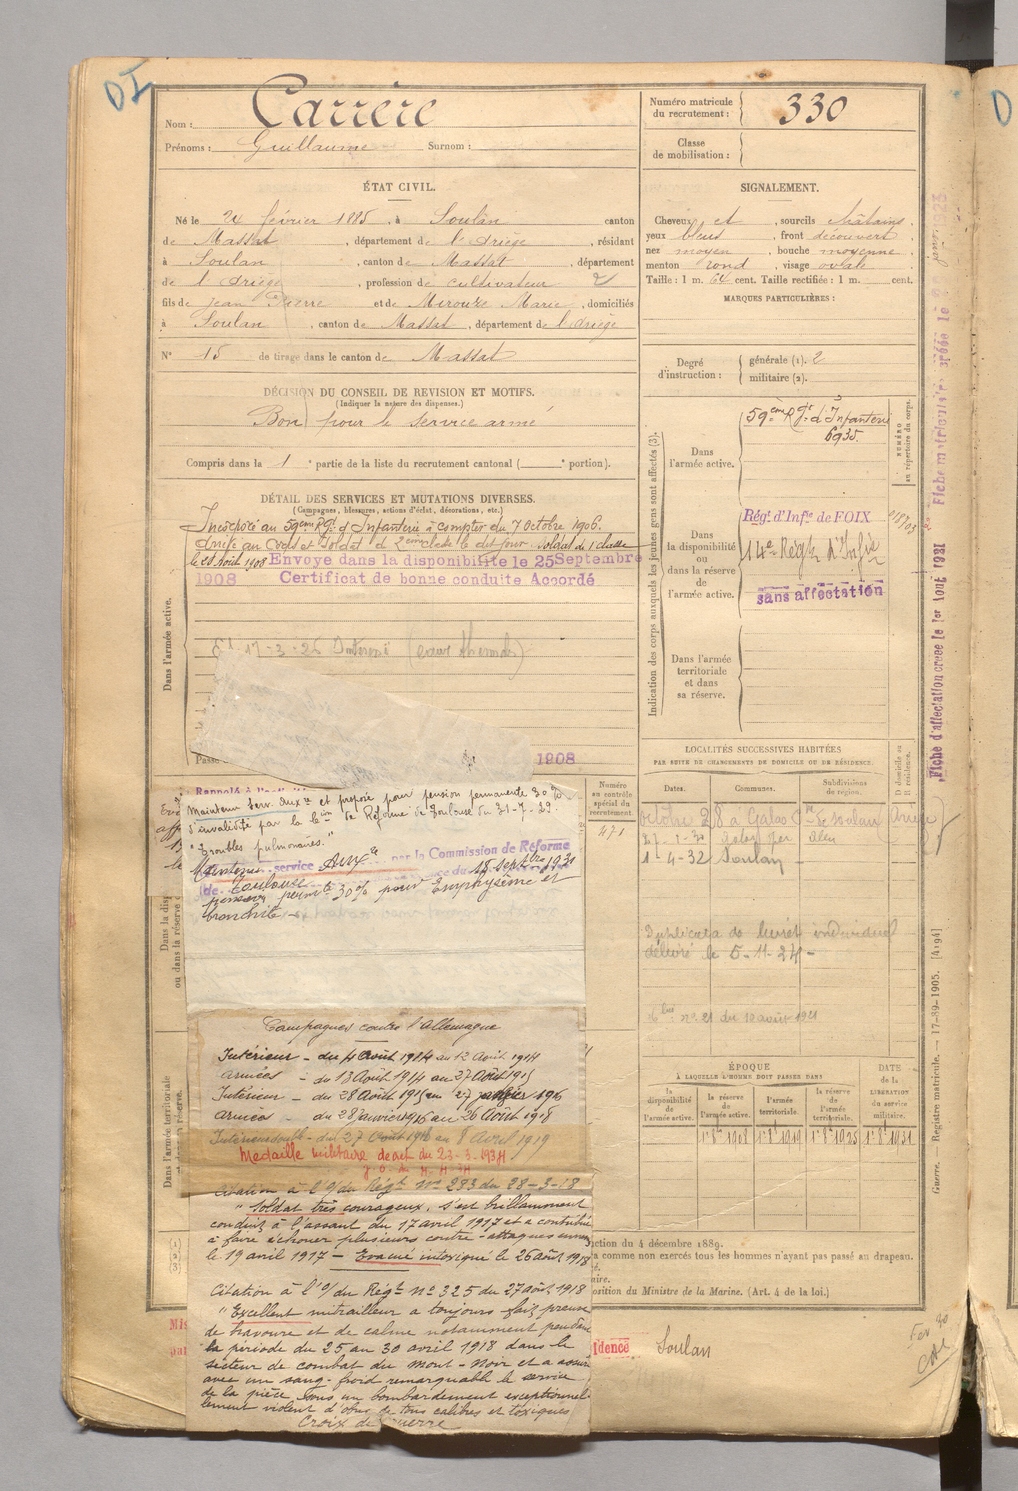 DI
Nom : Carrère
Prénoms : Guillaume Surnom :
Numéro matricule du recrutement : 330
Classe de mobilisation :
ÉTAT CIVIL.
Né le 24 février 1885, à Soulan canton
de Massat, département de l'Ariège, résidant
à Soulan, canton de Massat, département
de l'Ariège, profession de cultivateur
fils de Jean Pierre et de Mirouze Marie, domiciliés
à Soulan, canton de Massat, département de l'Ariège
N° 15 de tirage dans le canton de Massat
SIGNALEMENT.
Cheveux et , sourcils châtains
yeux bleus, front découvert
nez moyen, bouche moyenne
menton rond, visage ovale
Taille : 1 m. 64 cent. Taille rectifiée : 1 m. cent.
MARQUES PARTICULIÈRES :
Degré d'instruction : générale (1). 2
militaire (2).
DÉCISION DU CONSEIL DE REVISION ET MOTIFS.
(Indiquer la nature des dispenses.)
Bon pour le service armé
Compris dans la 1e partie de la liste du recrutement cantonal ( e portion).
DÉTAIL DES SERVICES ET MUTATIONS DIVERSES.
(Campagnes, blessures, actions d'éclat, décorations, etc.)
Incorporé au 59ème Rgt d'Infanterie à compter du 7 Octobre 1906.
Arrivé au Corps et Soldat de 2ème classe le dit jour. Soldat de 1e classe
le 28 Août 1908 Envoyé dans la disponibilité le 25 Septembre
1908 Certificat de bonne conduite Accordé
17-3-26
Passé
1908
Dans l'armée active.
Indication des corps auxquels les jeunes gens sont affectés (3).
Dans l'armée active.
59ème Rgt d'Infanterie
6935.
NUMÉRO au répertoire du corps.
Dans la disponibilité ou dans la réserve de l'armée active.
Régt d'Infie de FOIX
14e Régt d'Infie
sans affectation
Dans l'armée territoriale et dans sa réserve.
LOCALITÉS SUCCESSIVES HABITÉES
PAR SUITE DE CHANGEMENTS DE DOMICILE OU DE RÉSIDENCE.
Dates. Communes. Subdivisions de région. D domicile ou R résidence.
1-4-32 Soulan
Duplicata du livret individuel
délivré le 5-11-24-
Numéro au contrôle spécial du recrutement
471
Rappelé à l'
Maintenu serv. aux re et proposé pour pension permanente 30 %
d'invalidité par la con de Réforme de Toulouse du 31-7-29.
"Troubles pulmonaires."
Maintenu service Auxre par la Commission de Réforme
de Toulouse du 18 septbre 1930
pension permte 30% pour Emphysème et
bronchite -
Campagnes contre l'Allemagne
Intérieur - du 4 Août 1914 au 12 Août 1914
Armées - du 13 Août 1914 au 27 Août 1915
Intérieur - du 28 Août 1915 au 27 janvier 1916
Armées - du 28 janvier 1916 au 26 Août 1918
Intérieur - du 27 Août 1918 au 8 Avril 1919
Médaille militaire décret du 23-3-1934
Citation à l'O/du Régt N° 283 du 28-3-18
"Soldat très courageux, s'est brillamment
conduit à l'assaut du 17 avril 1917 et a contribué
à faire échouer plusieurs contre-attaques
le 19 avril 1917 - Evacué intoxiqué le 26 août 1918
Citation à l'O/ du Régt n° 325 du 27 août 1918
"Excellent mitrailleur a toujours fait preuve
de bravoure et de calme notamment pendant
la période du 25 au 30 avril 1918 dans le
secteur de combat du mont-Noir et a assuré
avec un sang-froid remarquable le service
de la pièce sous un bombardement exceptionnel-
lement violent d'obus de tous calibres et toxiques
Croix de guerre
ÉPOQUE
À LAQUELLE L'HOMME DOIT PASSER DANS
la disponibilité de l'armée active. la réserve de l'armée active. l'armée territoriale. la réserve de l'armée territoriale.
DATE de la LIBÉRATION du service militaire.
ction du 4 décembre 1889.
a comme non exercés tous les hommes n'ayant pas passé au drapeau.
osition du Ministre de la Marine. (Art. 4 de la loi.)
(1)
(2)
(3)
Dans l'armée territoriale
idence Soulan
Guerre. — Registre matricule. — 17-39-1905. [4194]
Fiche d'affectation créée le 1er Aout 1921